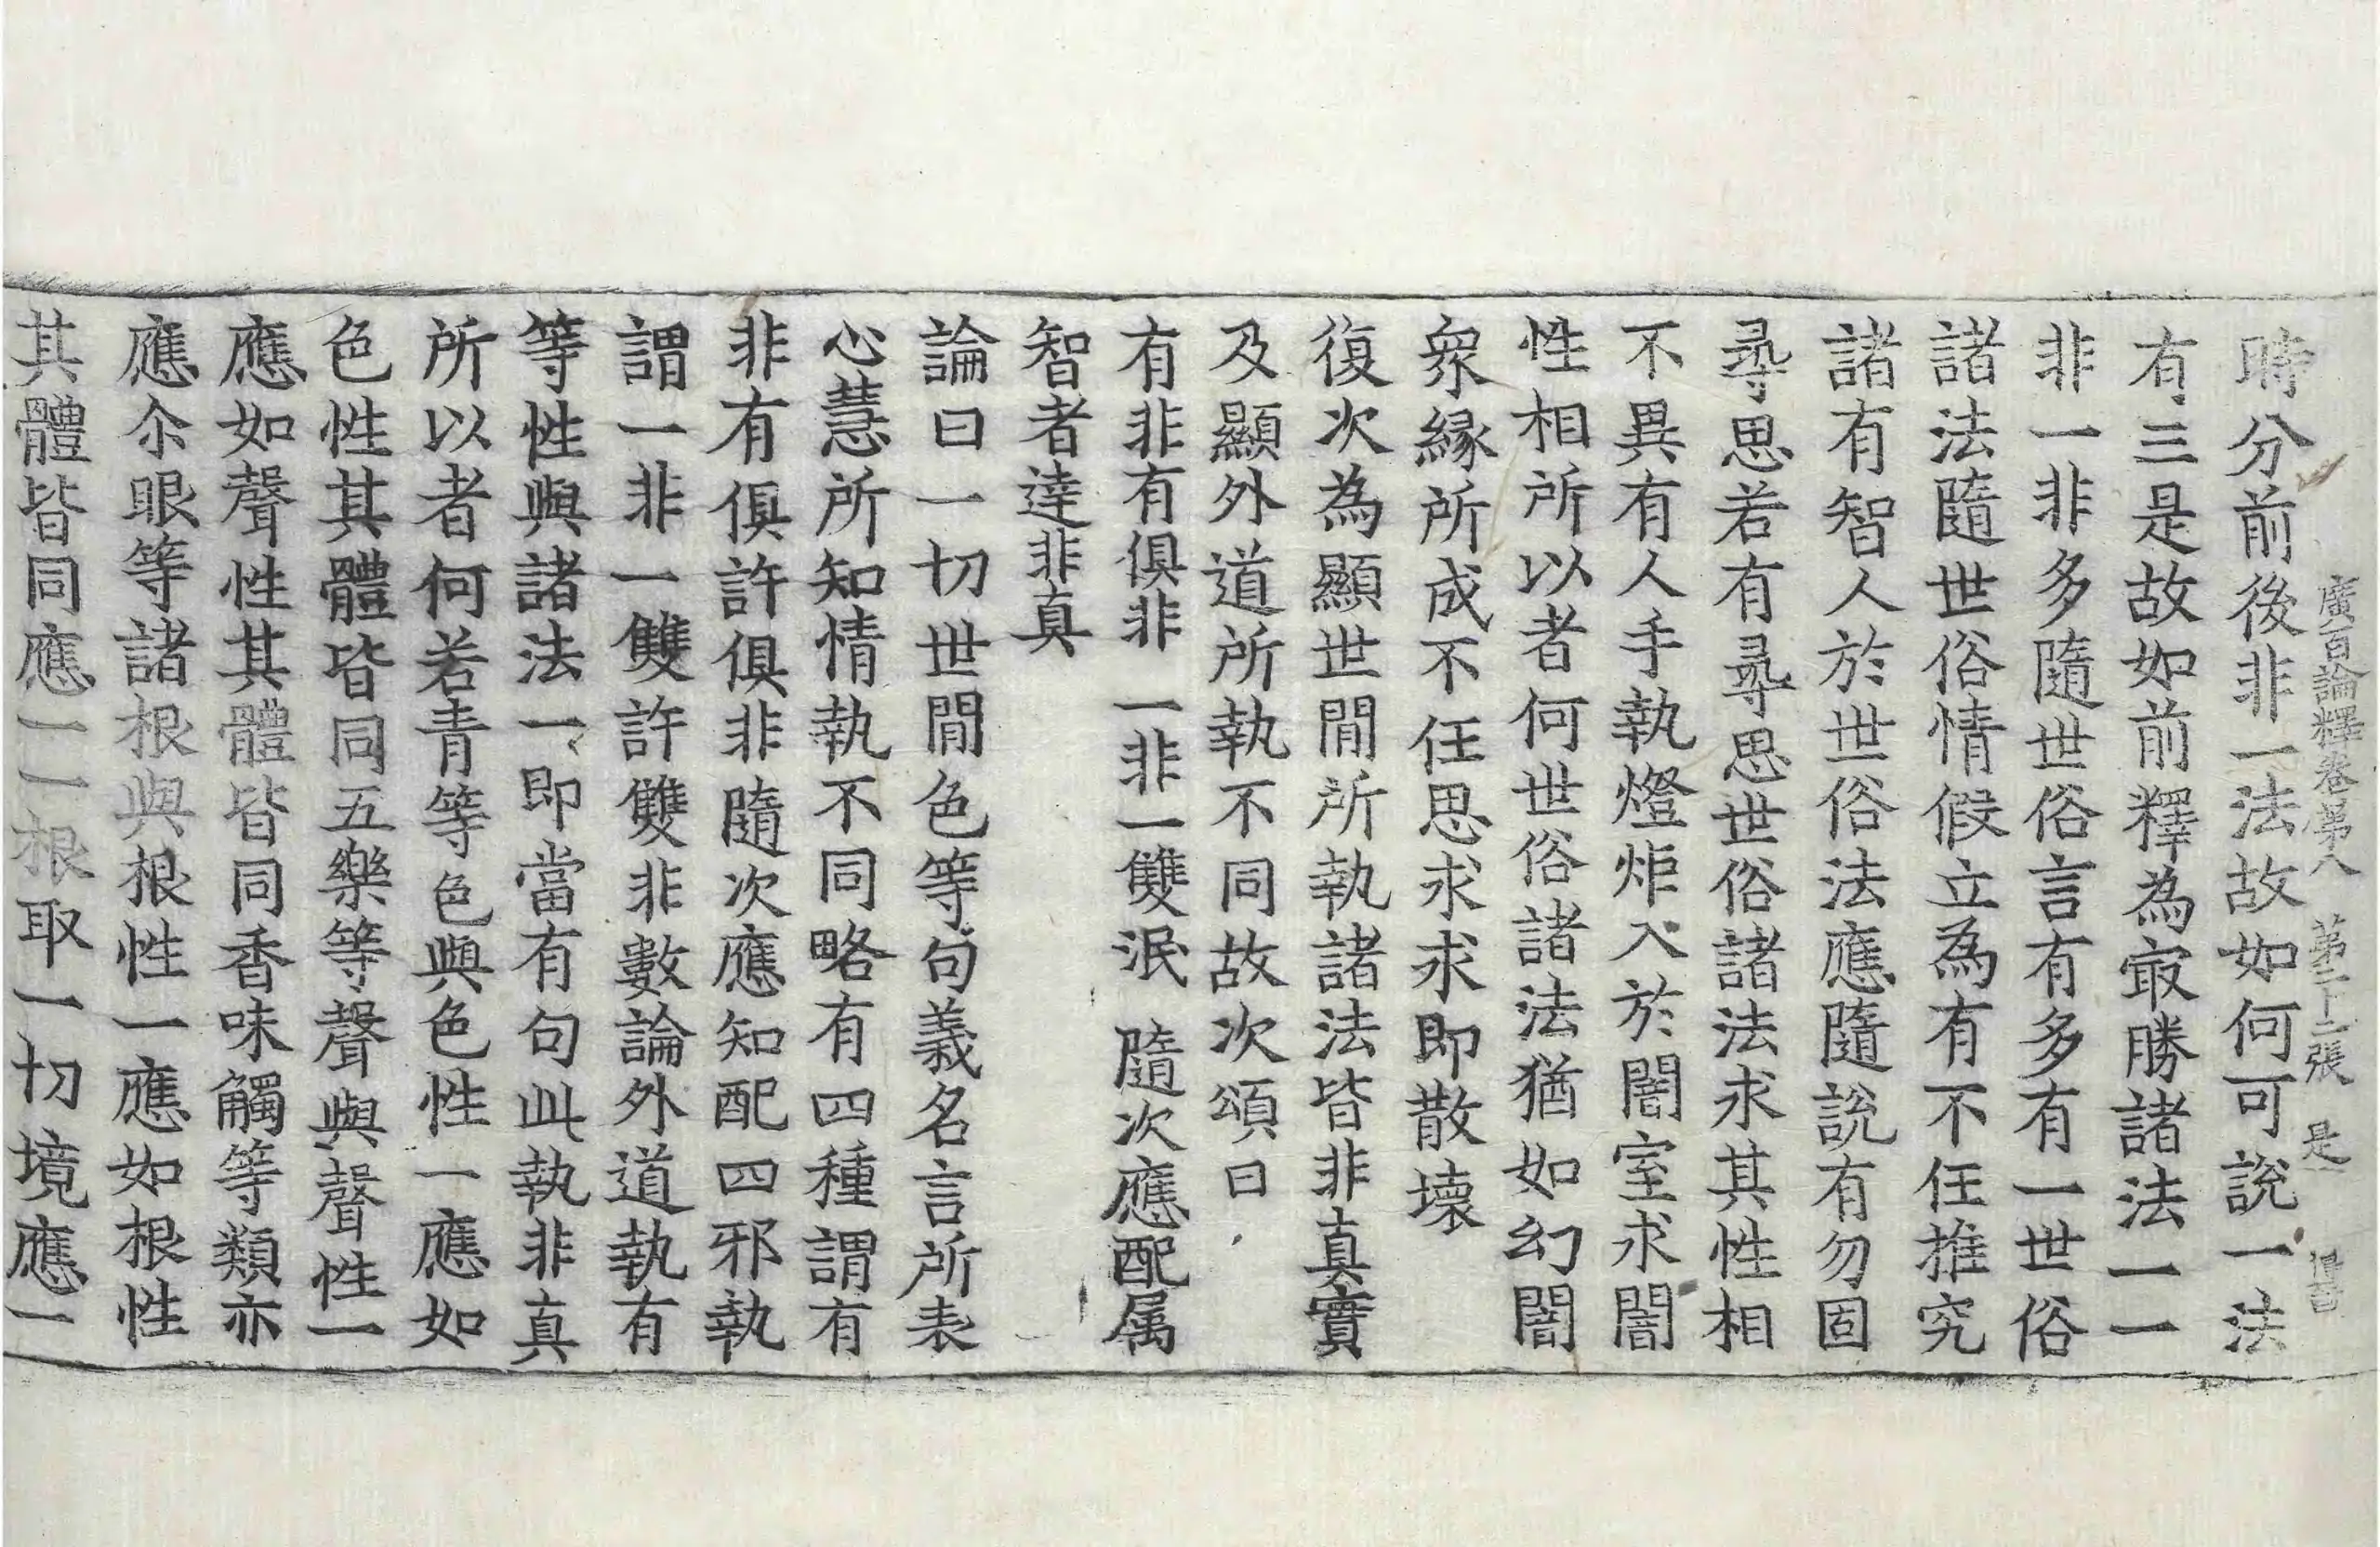 廣百論釋卷第八　第二十二張　是
時分前後非一法故如何可說一法
有三是故如前釋為㝡勝諸法一一
非一非多隨世俗言有多有一世俗
諸法隨世俗情假立為有不任推究
諸有智人於世俗法應隨說有勿固
尋思若有尋思世俗諸法求其性相
不異有人手執燈炬入於闇室求闇
性相所以者何世俗諸法猶如幻闇
衆緣所成不任思求求即散壞
復次為顯世閒所執諸法皆非真實
及顯外道所執不同故次頌曰
有非有俱非　一非一雙泯　隨次應配属
智者達非真
論曰一切世閒色等句義名言所表
心慧所知情執不同略有四種謂有
非有俱許俱非隨次應知配四邪執
謂一非一雙許雙非數論外道執有
等性與諸法一即當有句此執非真
所以者何若青等色與色性一應如
色性其體皆同五樂等聲與聲性一
應如聲性其體皆同香味觸等類亦
應尒眼等諸根與根性一應如根性
其體皆同應一一根取一切境應一